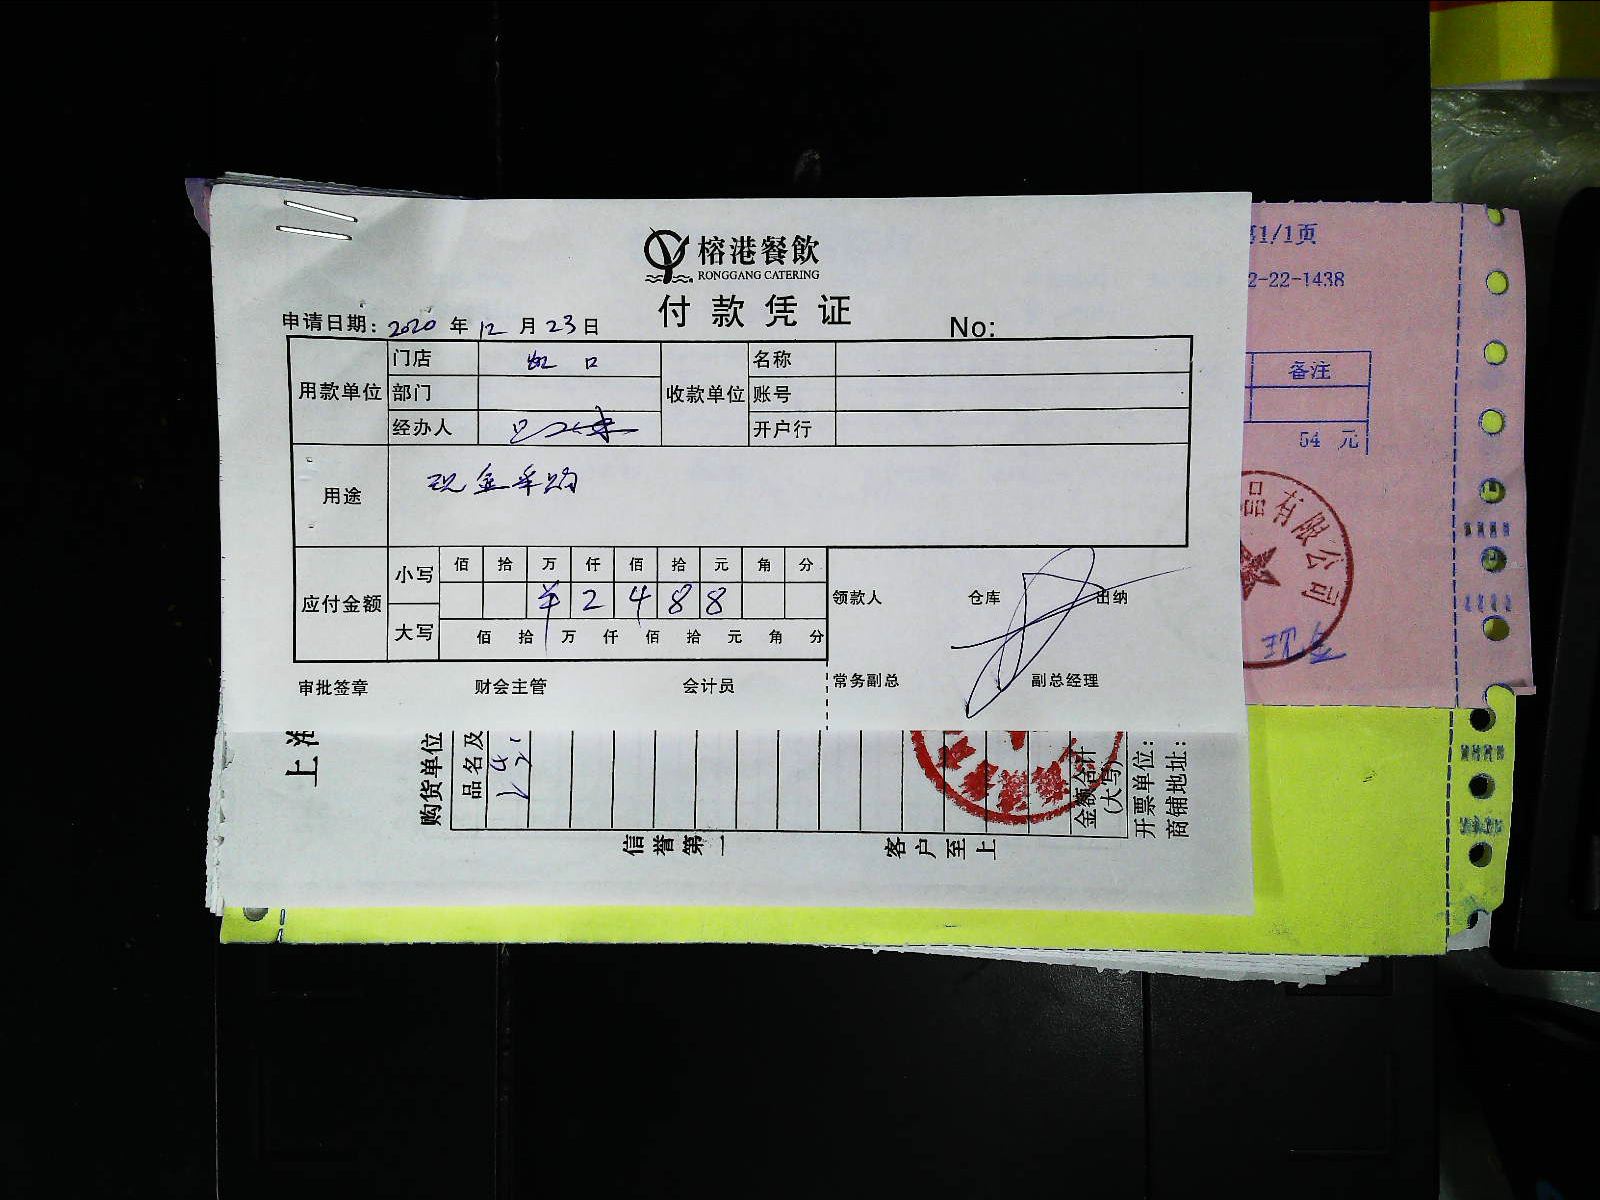 榕港餐飲
RONGGANG CATERING
付款凭证
申请日期: 2020 年 12 月 23 日 No:
用款单位 门店 虹口 收款单位 名称
部门 账号
经办人 开户行
用途 现金采购
应付金额 小写 佰 拾 万 仟 佰 拾 元 角 分
¥ 2 4 8 8
大写 佰 拾 万 仟 佰 拾 元 角 分
领款人 仓库 出纳
审批签章 财会主管 会计员 常务副总 副总经理
第1/1页
2-22-1438
备注
54 元
品有限公司
现金
上海
购货单位
品名及
金额合计
(大写)
开票单位:
商铺地址:
信誉第一 客户至上